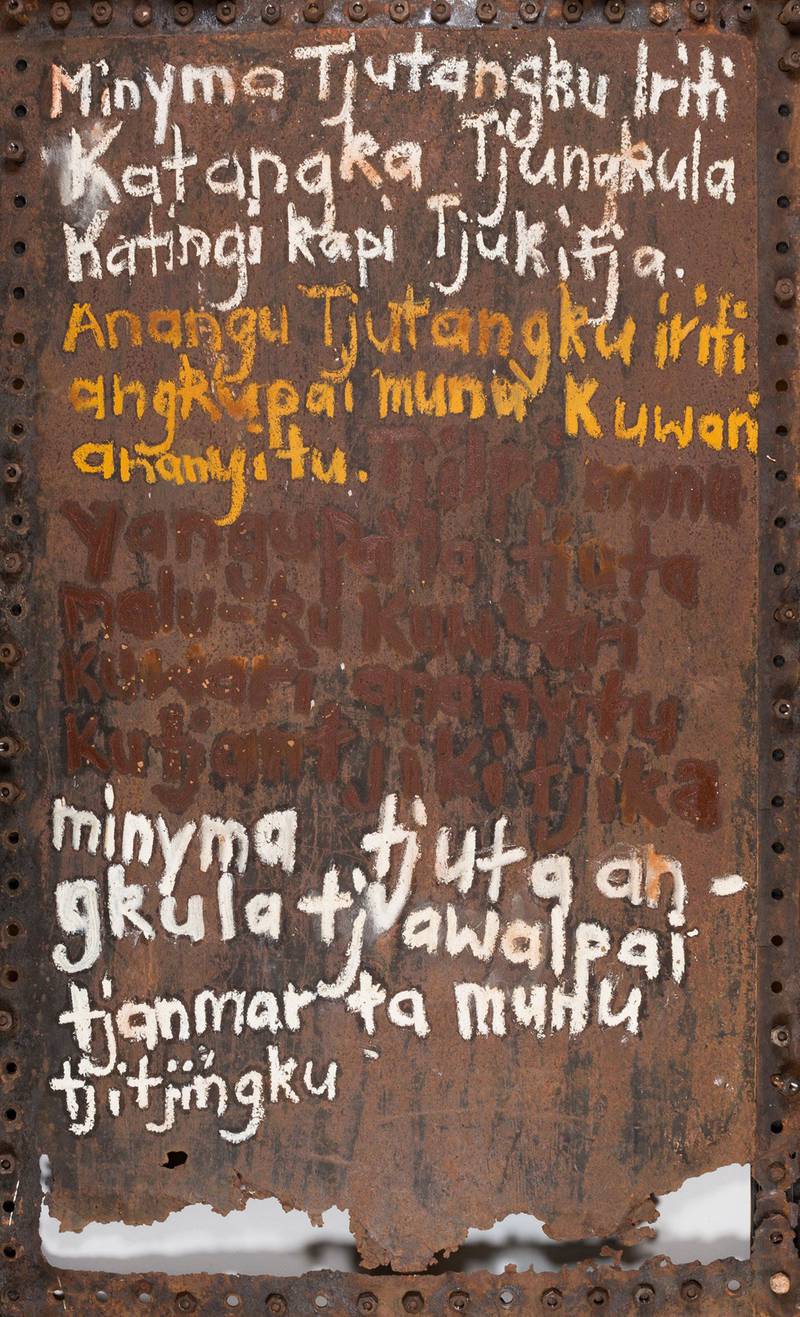 Minyma Tjutangku Iriti
Katangka Tjungkula
Katingi kapi Tjukitja.
Anangu Tjutangku iriti
angkupai munu Kuwari
ananyitu. Tjilpi munu
yangupala tjuta
malu-ku kuwari
Kuwari ananyitu
kutjantjikitjika
minyma tjuta an-
gkula tjawalpai
tjanmar ta munu
tjitjingku